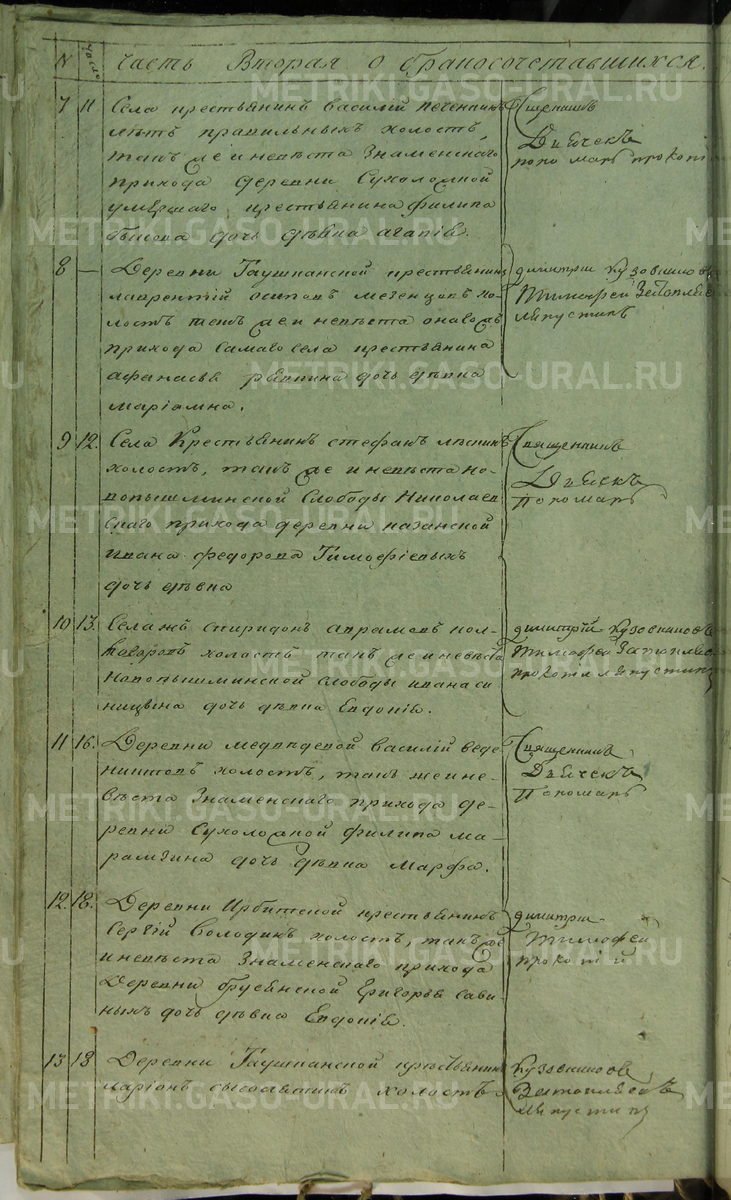 N число Часть Вторая о бракосочетавшихся.
7 11 Села крестьянинъ василий печенкинъ
лѣтъ правильныхъ холостъ,
такъ же и невѣста Знаменскаго
прихода деревни Сухоложской
умершаго крестьянина филипа
быкова дочь дѣвка агапія.
Священникъ
Дьячекъ
пономарь прокопій
8 — Деревни Гаушканской крестьянинъ
лаврентій осиповъ мезенцовъ хо-
лостъ такъ же и невѣста онаго жъ
прихода самаго села крестьянина
афанасья рѣпкина дочь дѣвка
маріамна.
димитрий Кузовниковъ
Тимофей
ляпустинъ
9 12. Села Крестьянинъ стефанъ
холостъ, такъ же и невѣста но-
вопышминской Слободы Николаев-
скаго прихода деревни казанской
ивана федорова Тимофіевыхъ
дочь дѣвка
Священникъ
Дьячекъ
Пономарь
10 13. Села жъ спиридонъ аврамовъ кол-
когоровъ холостъ такъ же и невѣста
Новопышминской слободы ивана си-
ницына дочь дѣвка Евдокія.
димитрій Кузовниковъ
Тимофей
прокопий ляпустинъ
11 16. Деревни медвѣдевой василій веде-
никтовъ холостъ, такъ же и не-
вѣста Знаменскаго прихода де-
ревни Сухоложской филипа ма-
рамзина дочь дѣвка Марфа.
Священникъ
Дьячекъ
Пономарь
12. 18. Деревни Ирбитской крестьянинъ
Сергій Володинъ холостъ, такъ же
и невѣста Знаменскаго прихода
Деревни брусянской Григорья сави-
ныхъ дочь дѣвка Евдокія.
димитрий
Тимофей
прокопій
13 18 Деревни Гаушканской крестьянинъ
ларіонъ сысолятинъ холостъ
Кузовниковъ
ляпустинъ
METRIKI.GASO-URAL.RU